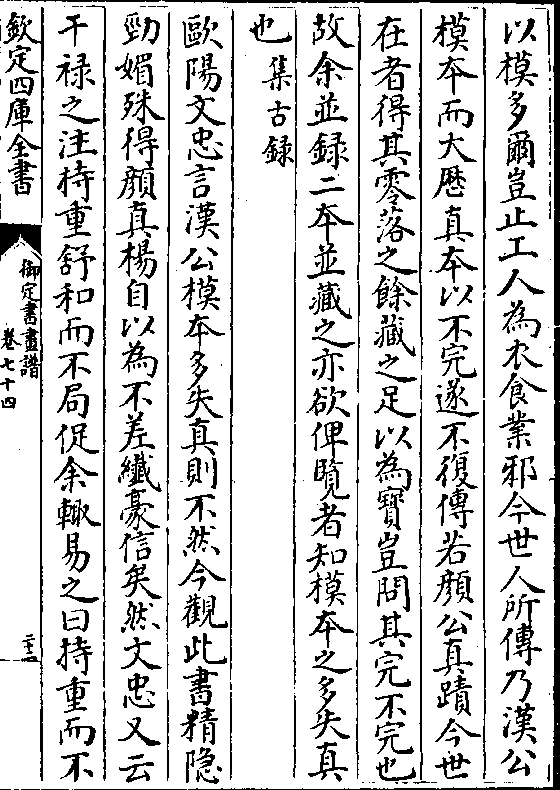 以模多爾豈止工人為衣食業邪今世人所傳乃漢公
模本而大厯真本以不完遂不復傳若顔公真蹟今世
在者得其零落之餘藏之足以為寶豈問其完不完也
故余並録二本並藏之亦欲俾覽者知模本之多失真
也集古録
歐陽文忠言漢公模本多失真則不然今觀此書精隐
勁媚殊得顔真楊自以為不差纎豪信矣然文忠又云
干祿之注持重舒和而不局促余輙易之曰持重而不
欽定四庫全書
御定書畫譜
卷七十四